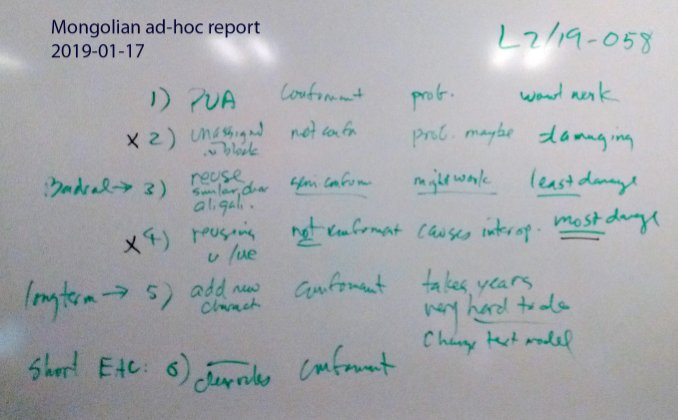 Mongolian ad-hoc report
2019-01-17
L2/19-058
1) PUA conformant prob. wont work
x 2) unassigned in block not confn prob. maybe damaging
→ 3) reuse similar char semi conform might work least damage
x 4) reusing u/ue not conformant causes interop. most damage
long term → 5) add new charact conformant takes years
very hard to do
Change text model
Short Etc: 6) conformant